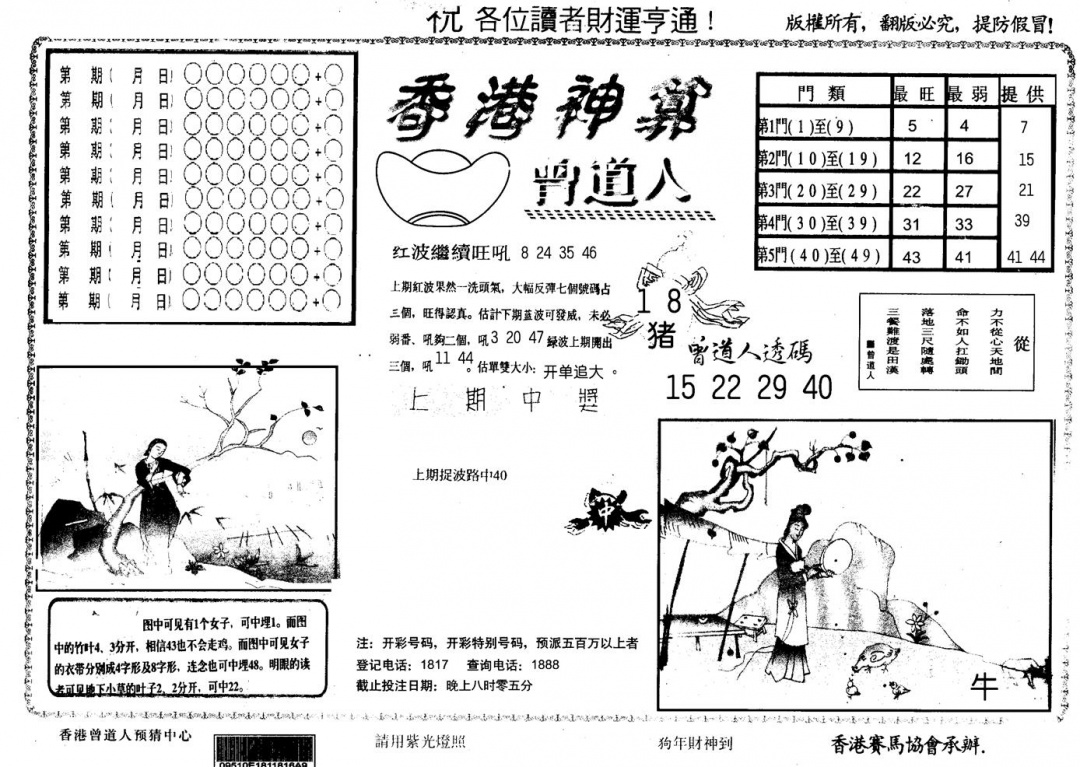 祝 各位讀者財運亨通！
版權所有，翻版必究，提防假冒!
第 期( 月 日) +
第 期( 月 日) +
第 期( 月 日) +
第 期( 月 日) +
第 期( 月 日) +
第 期( 月 日) +
第 期( 月 日) +
第 期( 月 日) +
第 期( 月 日) +
第 期( 月 日) +
香港神算
曾道人
門類 最旺 最弱 提供
第1門(1)至(9) 5 4 7
第2門(10)至(19) 12 16 15
第3門(20)至(29) 22 27 21
第4門(30)至(39) 31 33 39
第5門(40)至(49) 43 41 41 44
红波繼續旺吼 8 24 35 46
上期紅波果然一洗頭氣，大幅反彈七個號碼占
三個，旺得認真。估計下期蓝波可發威，未必
弱番、吼夠二個，吼3 20 47 緑波上期開出
三個，吼11 44。估單雙大小：开单追大。
上期中獎
上期捉波路中40
18
猪
曾道人透碼
15 22 29 40
從
力不從心天地間
命不如人扛鋤頭
落地三尺隨處轉
三餐難渡是田漢
曾道人
中
牛
图中可见有1个女子，可中埋1。而图
中的竹叶4、3分开，相信43也不会走鸡。而图中可见女子
的衣带分别成4字形及8字形，连念也可中埋48。明眼的读
者可见地下小草的叶子2、2分开，可中22。
注：开彩号码，开彩特别号码，预派五百万以上者
登记电话：1817 查询电话：1888
截止投注日期：晚上八时零五分
香港曾道人预猜中心
09510E181816A9
請用紫光燈照
狗年财神到
香港賽馬協會承辦.